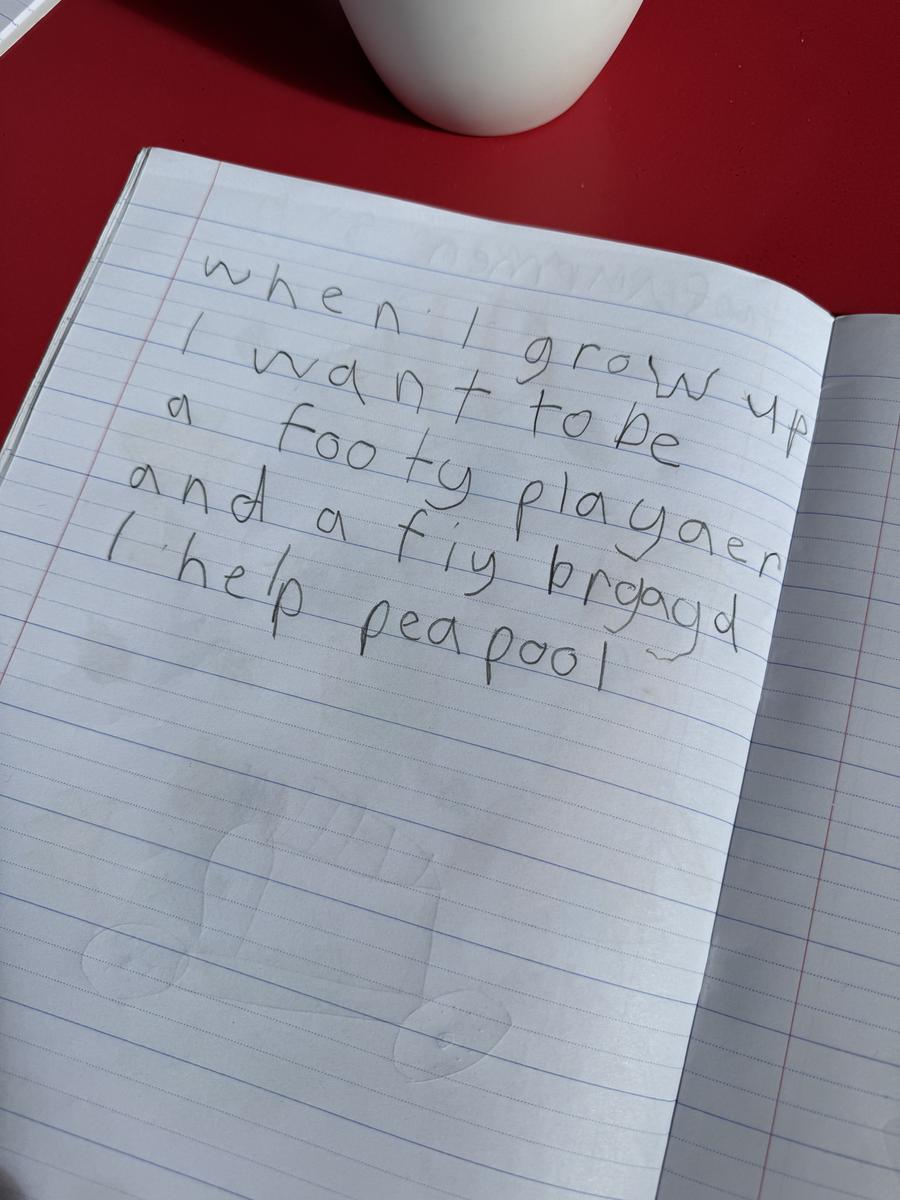 when I grow up
I want to be
a footy playaer
and a fiy brgagd
I help peapool